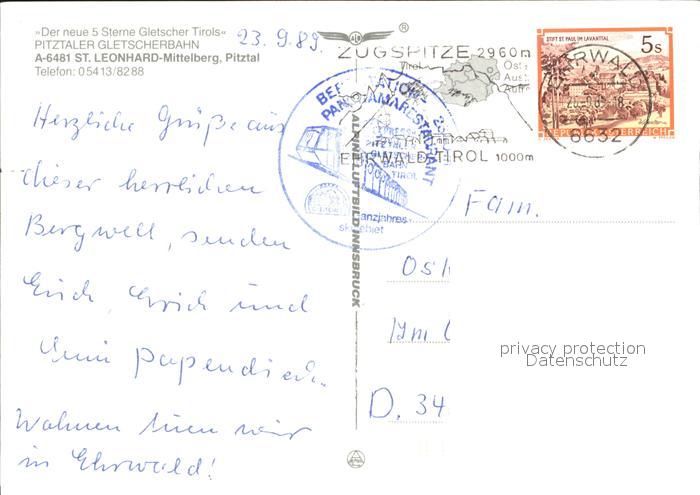 »Der neue 5 Sterne Gletscher Tirols«
PITZTALER GLETSCHERBAHN
A-6481 ST. LEONHARD-Mittelberg, Pitztal
Telefon: 05413/8288
23.9.89.
Herzliche Grüße aus
dieser herrlichen
Bergwelt, senden
Euch, Erich und
Papendick.
Wohnen tuen wir
in Ehrwald!
ZUGSPITZE 2960m
Tirol
EHRWALD TIROL 1000m
BERGSTATION
PANORAMARESTAURANT
PITZTALER
BAHN
TIROL
Ganzjahres-
skigebiet
ALPINE LUFTBILD INNSBRUCK
STIFT ST. PAUL IM LAVANTTAL
5s
REPUBLIK ÖSTERREICH
EHRWALD
6632
Fam.
Im
D. 34
privacy protection
Datenschutz